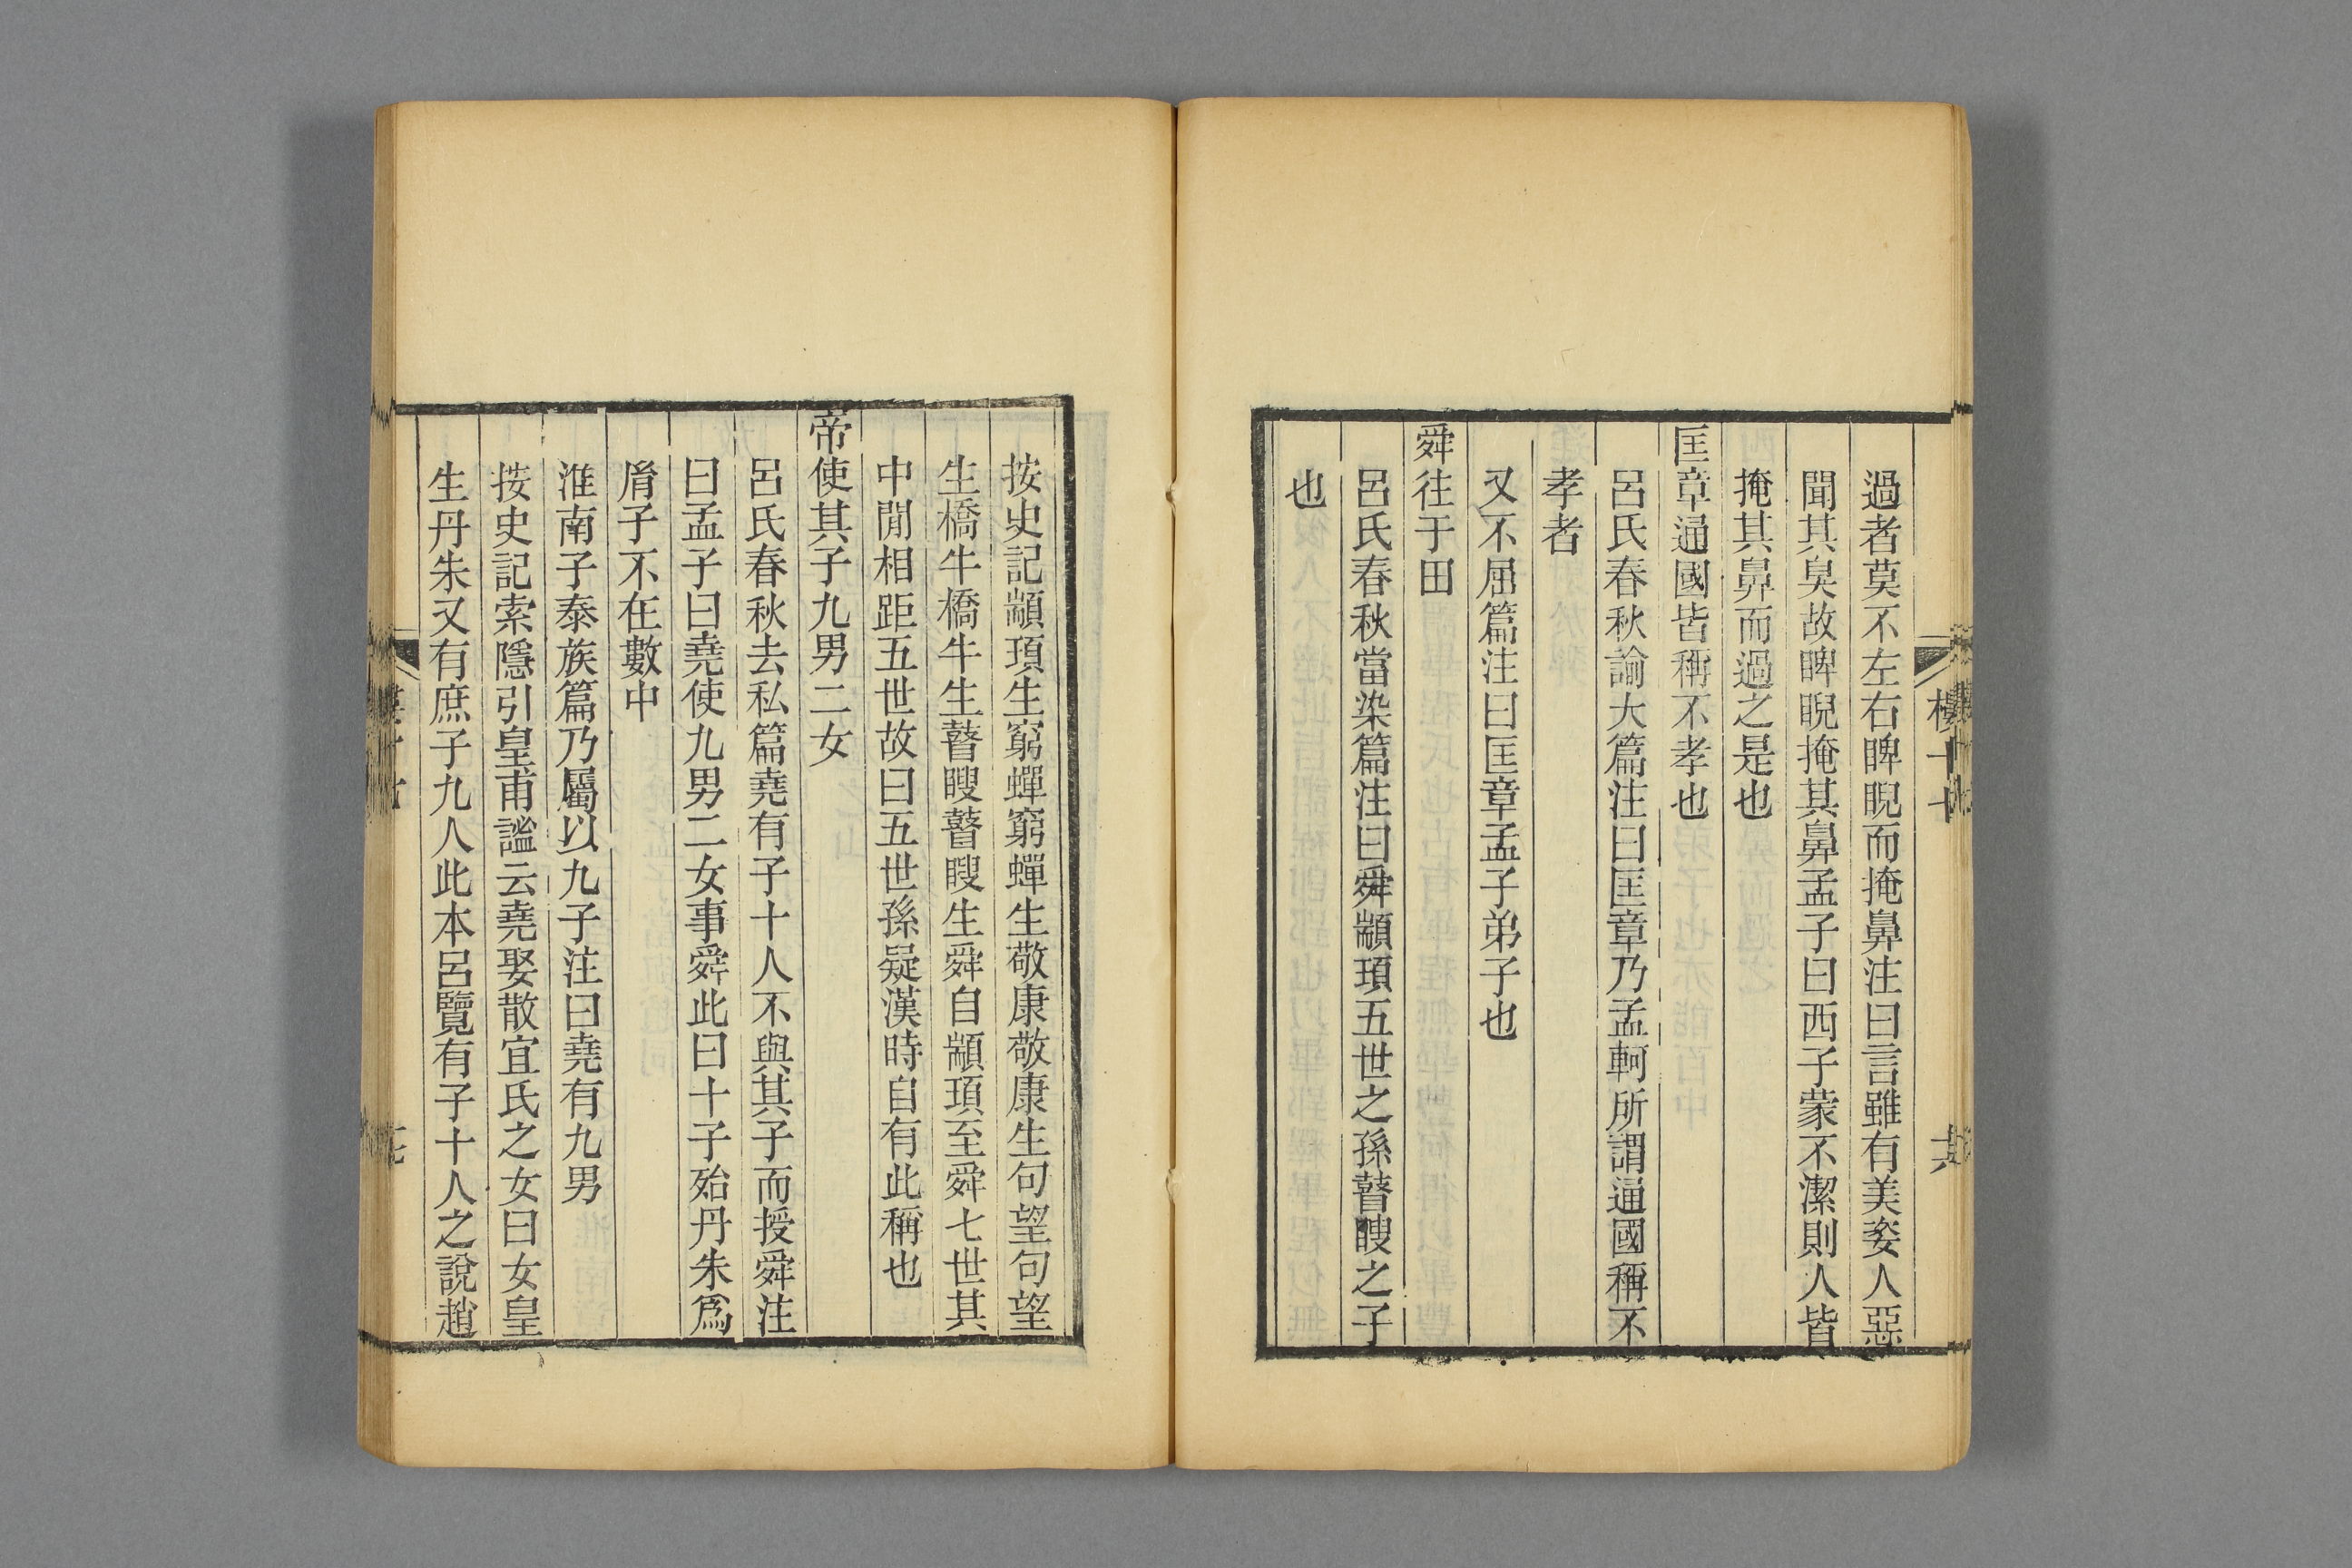 過者莫不左右睥睨而掩鼻注曰言雖有美姿人惡
聞其臭故睥睨掩其鼻孟子曰西子蒙不潔則人皆
掩其鼻而過之是也
匡章通國皆稱不孝也
呂氏春秋諭大篇注曰匡章乃孟軻所謂通國稱不
孝者
又不屈篇注曰匡章孟子弟子也
舜往于田
呂氏春秋當染篇注曰舜顓頊五世之孫瞽瞍之子
也
按史記顓頊生窮蟬窮蟬生敬康敬康生句望句望
生橋牛橋牛生瞽瞍瞽瞍生舜自顓頊至舜七世其
中閒相距五世故曰五世孫疑漢時自有此稱也
帝使其子九男二女
呂氏春秋去私篇堯有子十人不與其子而授舜注
曰孟子曰堯使九男二女事舜此曰十子殆丹朱爲
胤子不在數中
淮南子泰族篇乃屬以九子注曰堯有九男
按史記索隱引皇甫謐云堯娶散宜氏之女曰女皇
生丹朱又有庶子九人此本呂覽有子十人之說趙